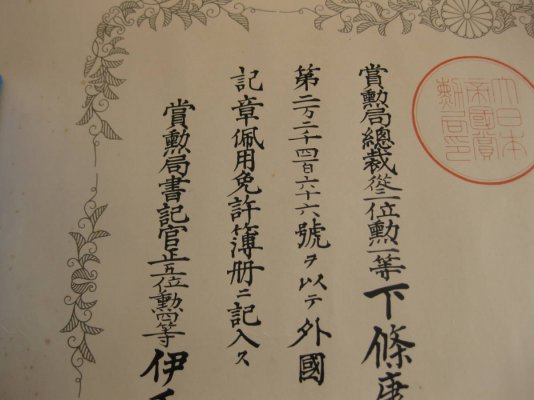 大日本
帝國賞
勲局印
賞勲局總裁從二位勲一等下條康
第二万二千四百六十六號ヲ以テ外國
記章佩用免許簿册ニ記入ス
賞勲局書記官正五位勲四等伊